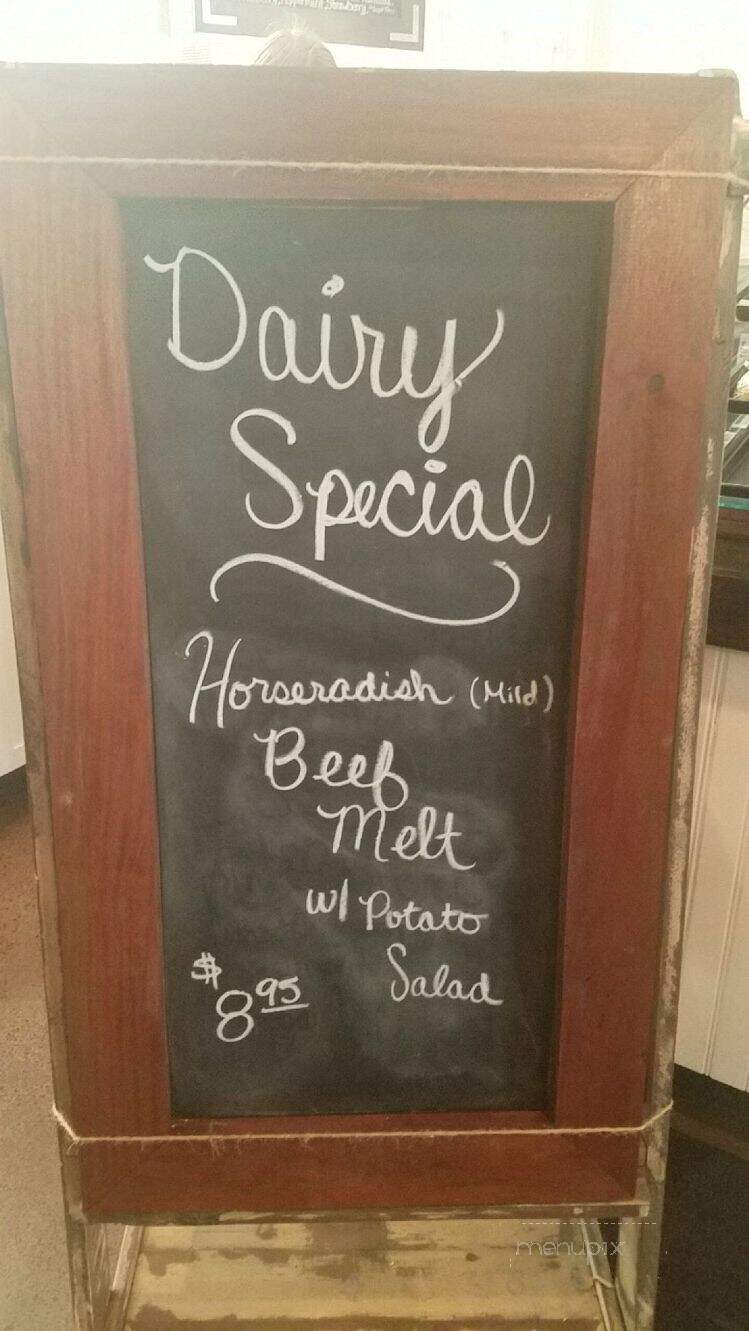 Peppermint, Strawberry,
Dairy
Special
Horseradish (Mild)
Beef
Melt
w/ Potato
Salad
$8.95
menupix